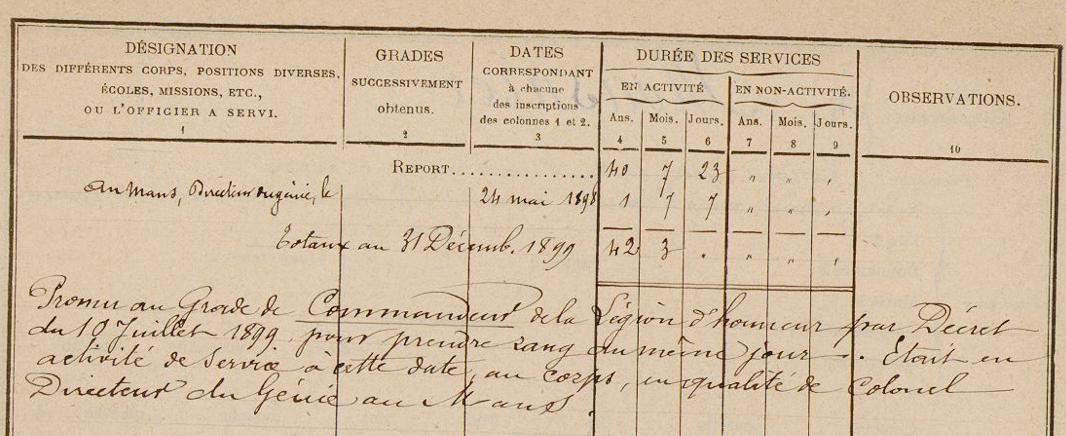 DÉSIGNATION
DES DIFFÉRENTS CORPS, POSITIONS DIVERSES,
ÉCOLES, MISSIONS, ETC.,
OU L'OFFICIER A SERVI.
1
GRADES
SUCCESSIVEMENT
obtenus.
2
DATES
CORRESPONDANT
à chacune
des inscriptions
des colonnes 1 et 2.
3
DURÉE DES SERVICES
EN ACTIVITÉ
EN NON-ACTIVITÉ.
Ans. Mois. Jours. Ans. Mois. Jours.
4 5 6 7 8 9
OBSERVATIONS.
10
REPORT................ 40 7 23 " " "
au Mans, Directeur du génie, le 24 mai 1898 1 7 7 " " "
Totaux au 31 Décemb. 1899 42 3 " " " "
Promu au Grade de Commandeur de la Légion d'honneur par Décret
du 10 Juillet 1899, pour prendre rang du même jour. Etait en
activité de service à cette date, au corps, en qualité de Colonel
Directeur du Génie au Mans.